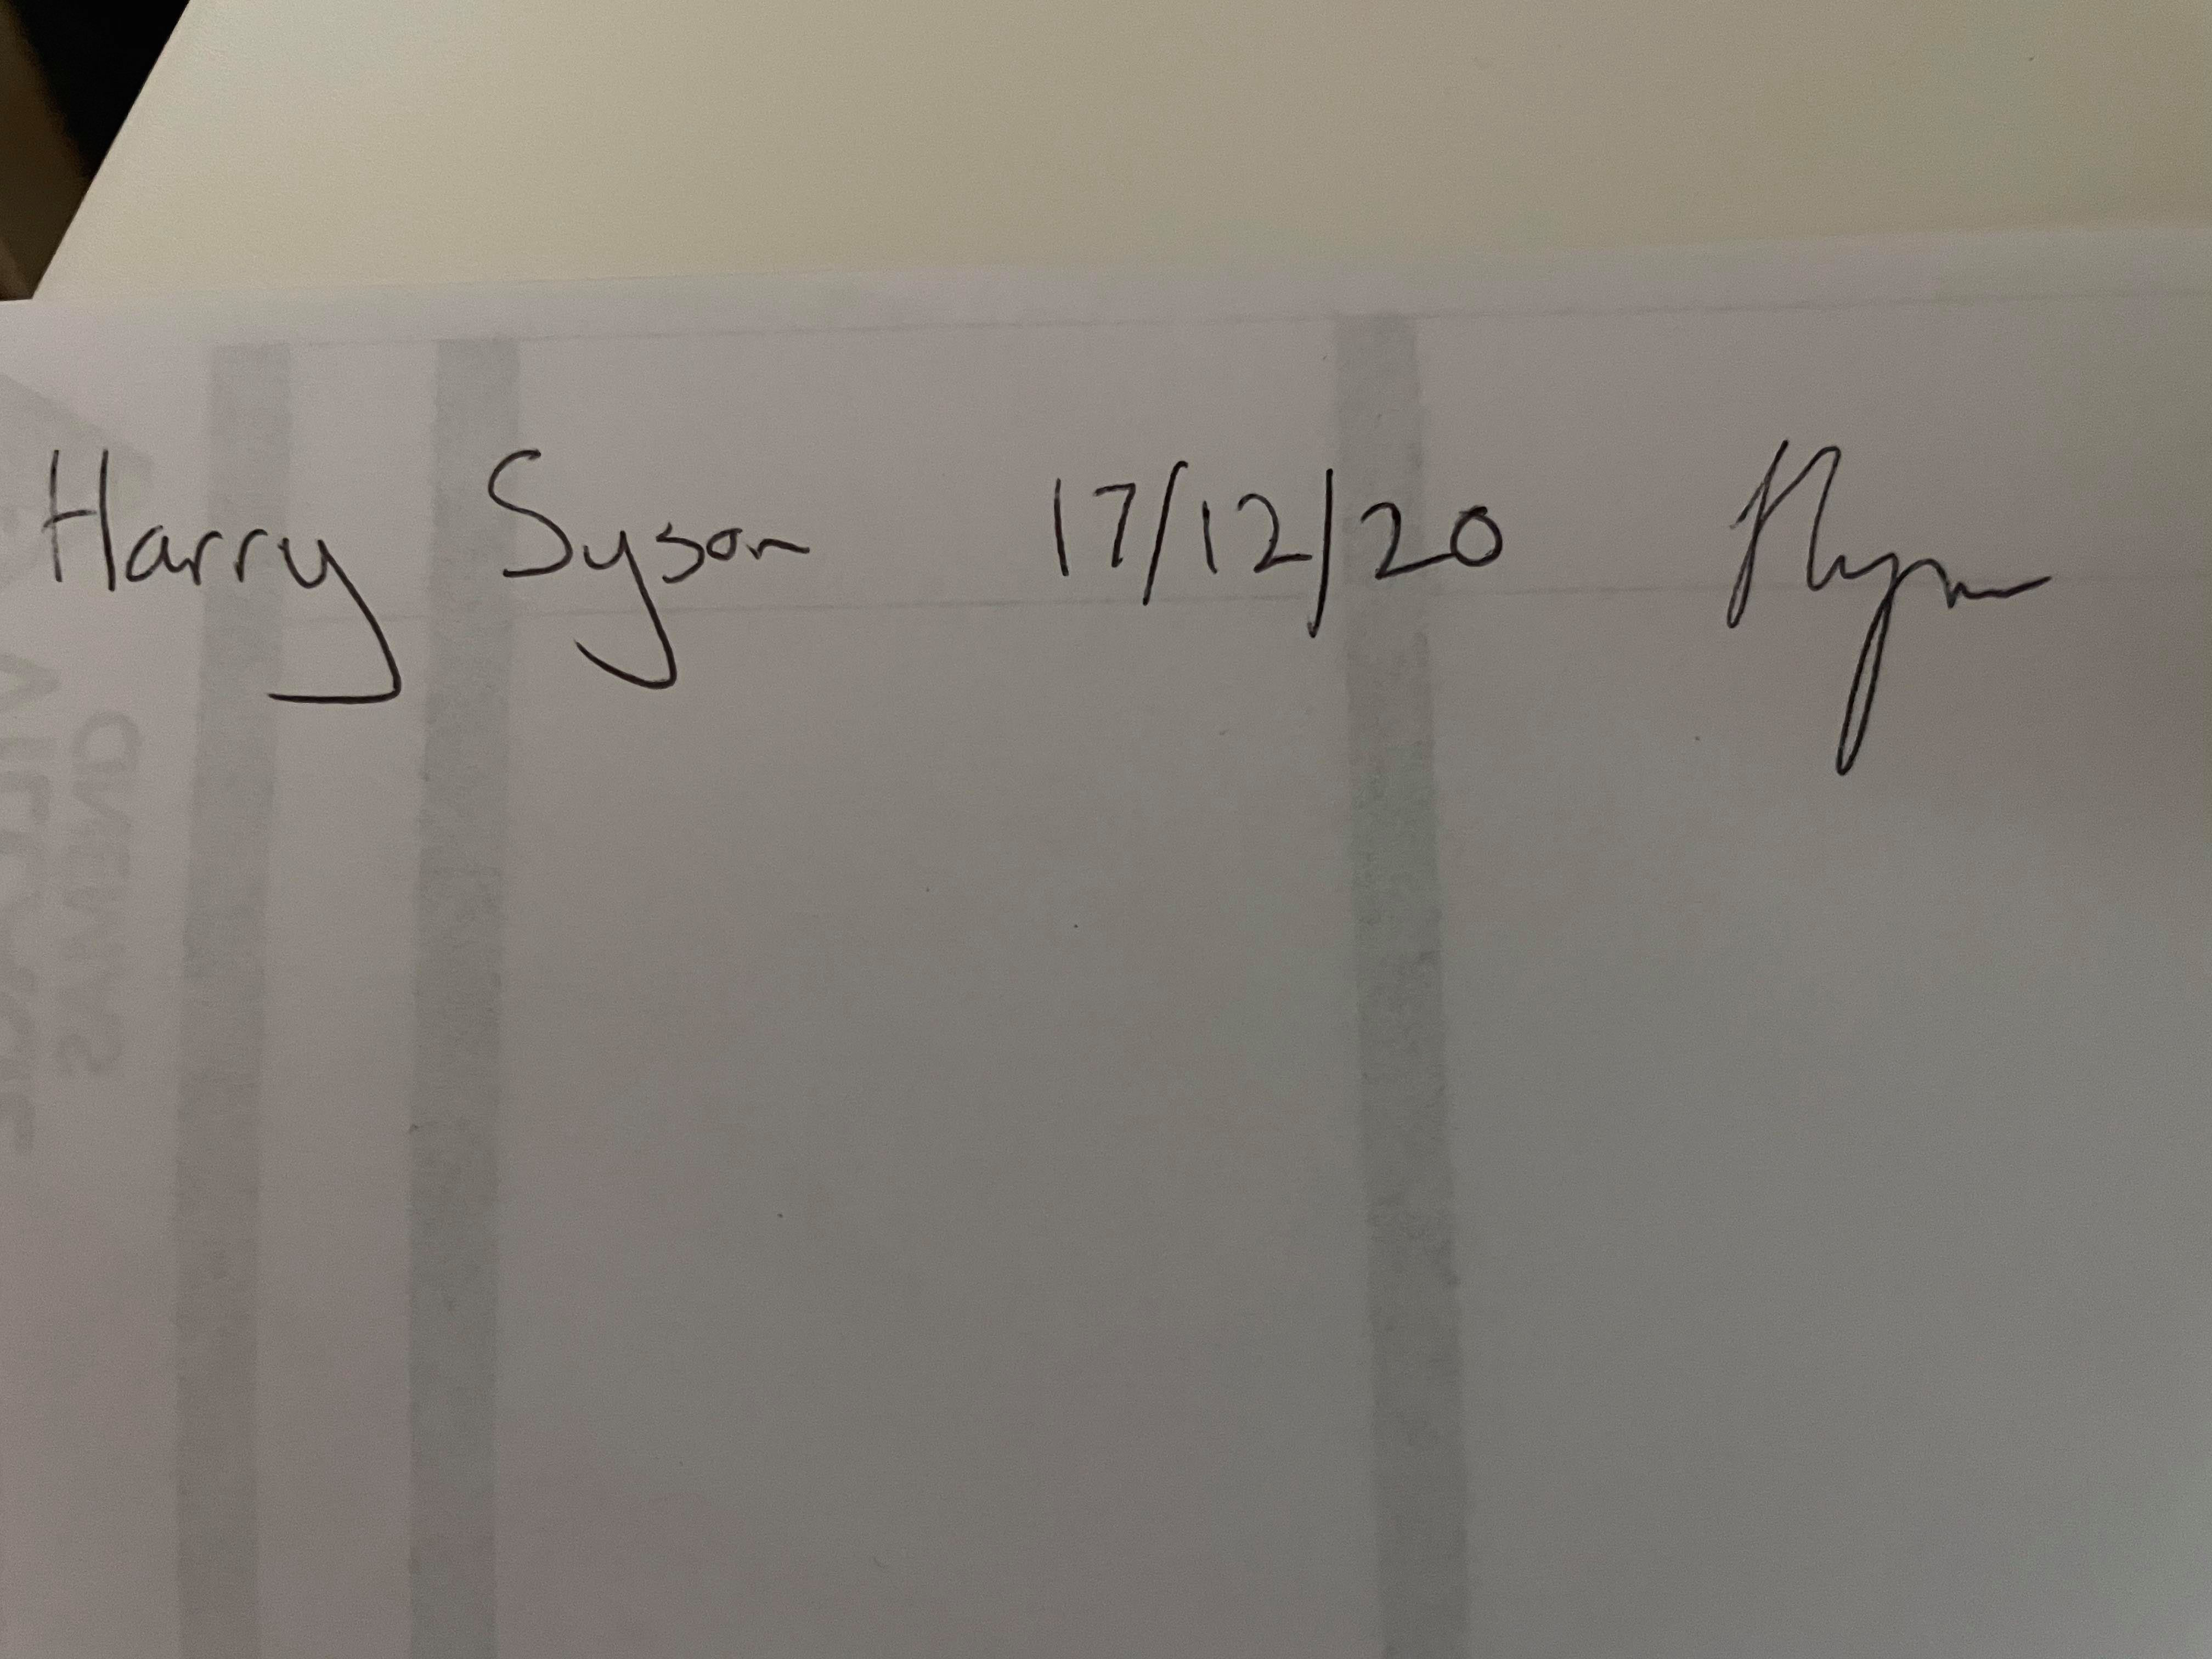 Harry Syson 17/12/20